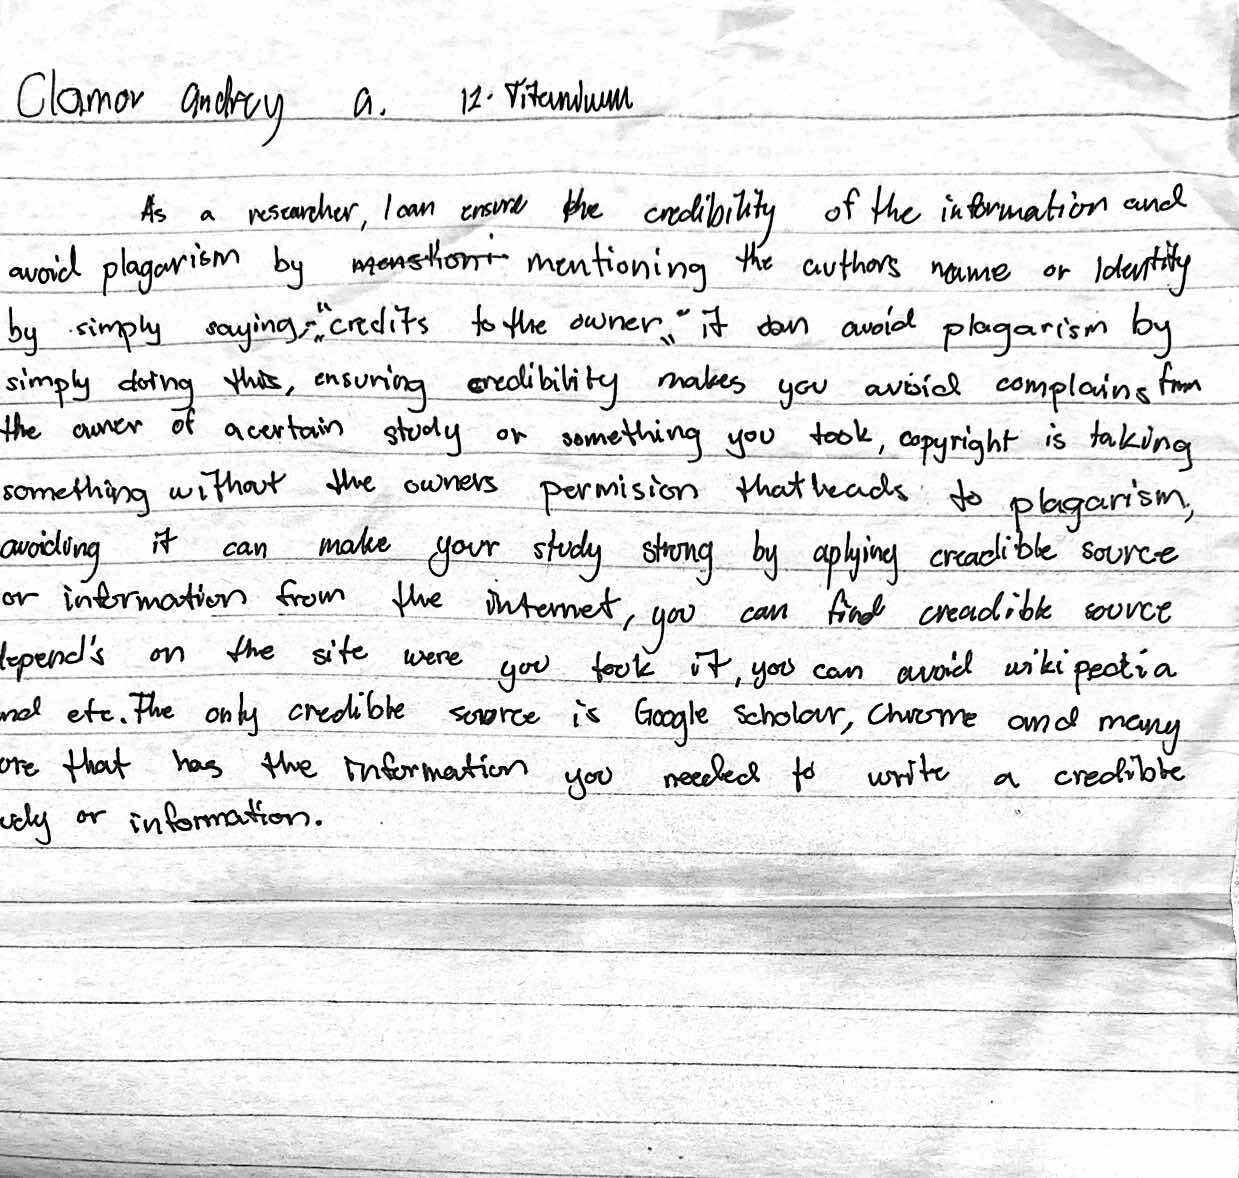 Clamor Andrey A. 12. Titanium
As a researcher, I can ensure the credibility of the information and
avoid plagarism by menstioni mentioning the authors name or Identity
by simply saying, "credits to the owner" it can avoid plagarism by
simply doing this, ensuring credibility makes you avoid complains from
the owner of a certain study or something you took, copyright is taking
something without the owners permision that leads to plagarism,
avoiding it can make your study strong by aplying creadible source
or information from the internet, you can find creadible source
depend's on the site were you took it, you can avoid wikipedia
and etc. The only credible source is Google Scholar, Chrome and many
ore that has the information you needed to write a credible
udy or information.